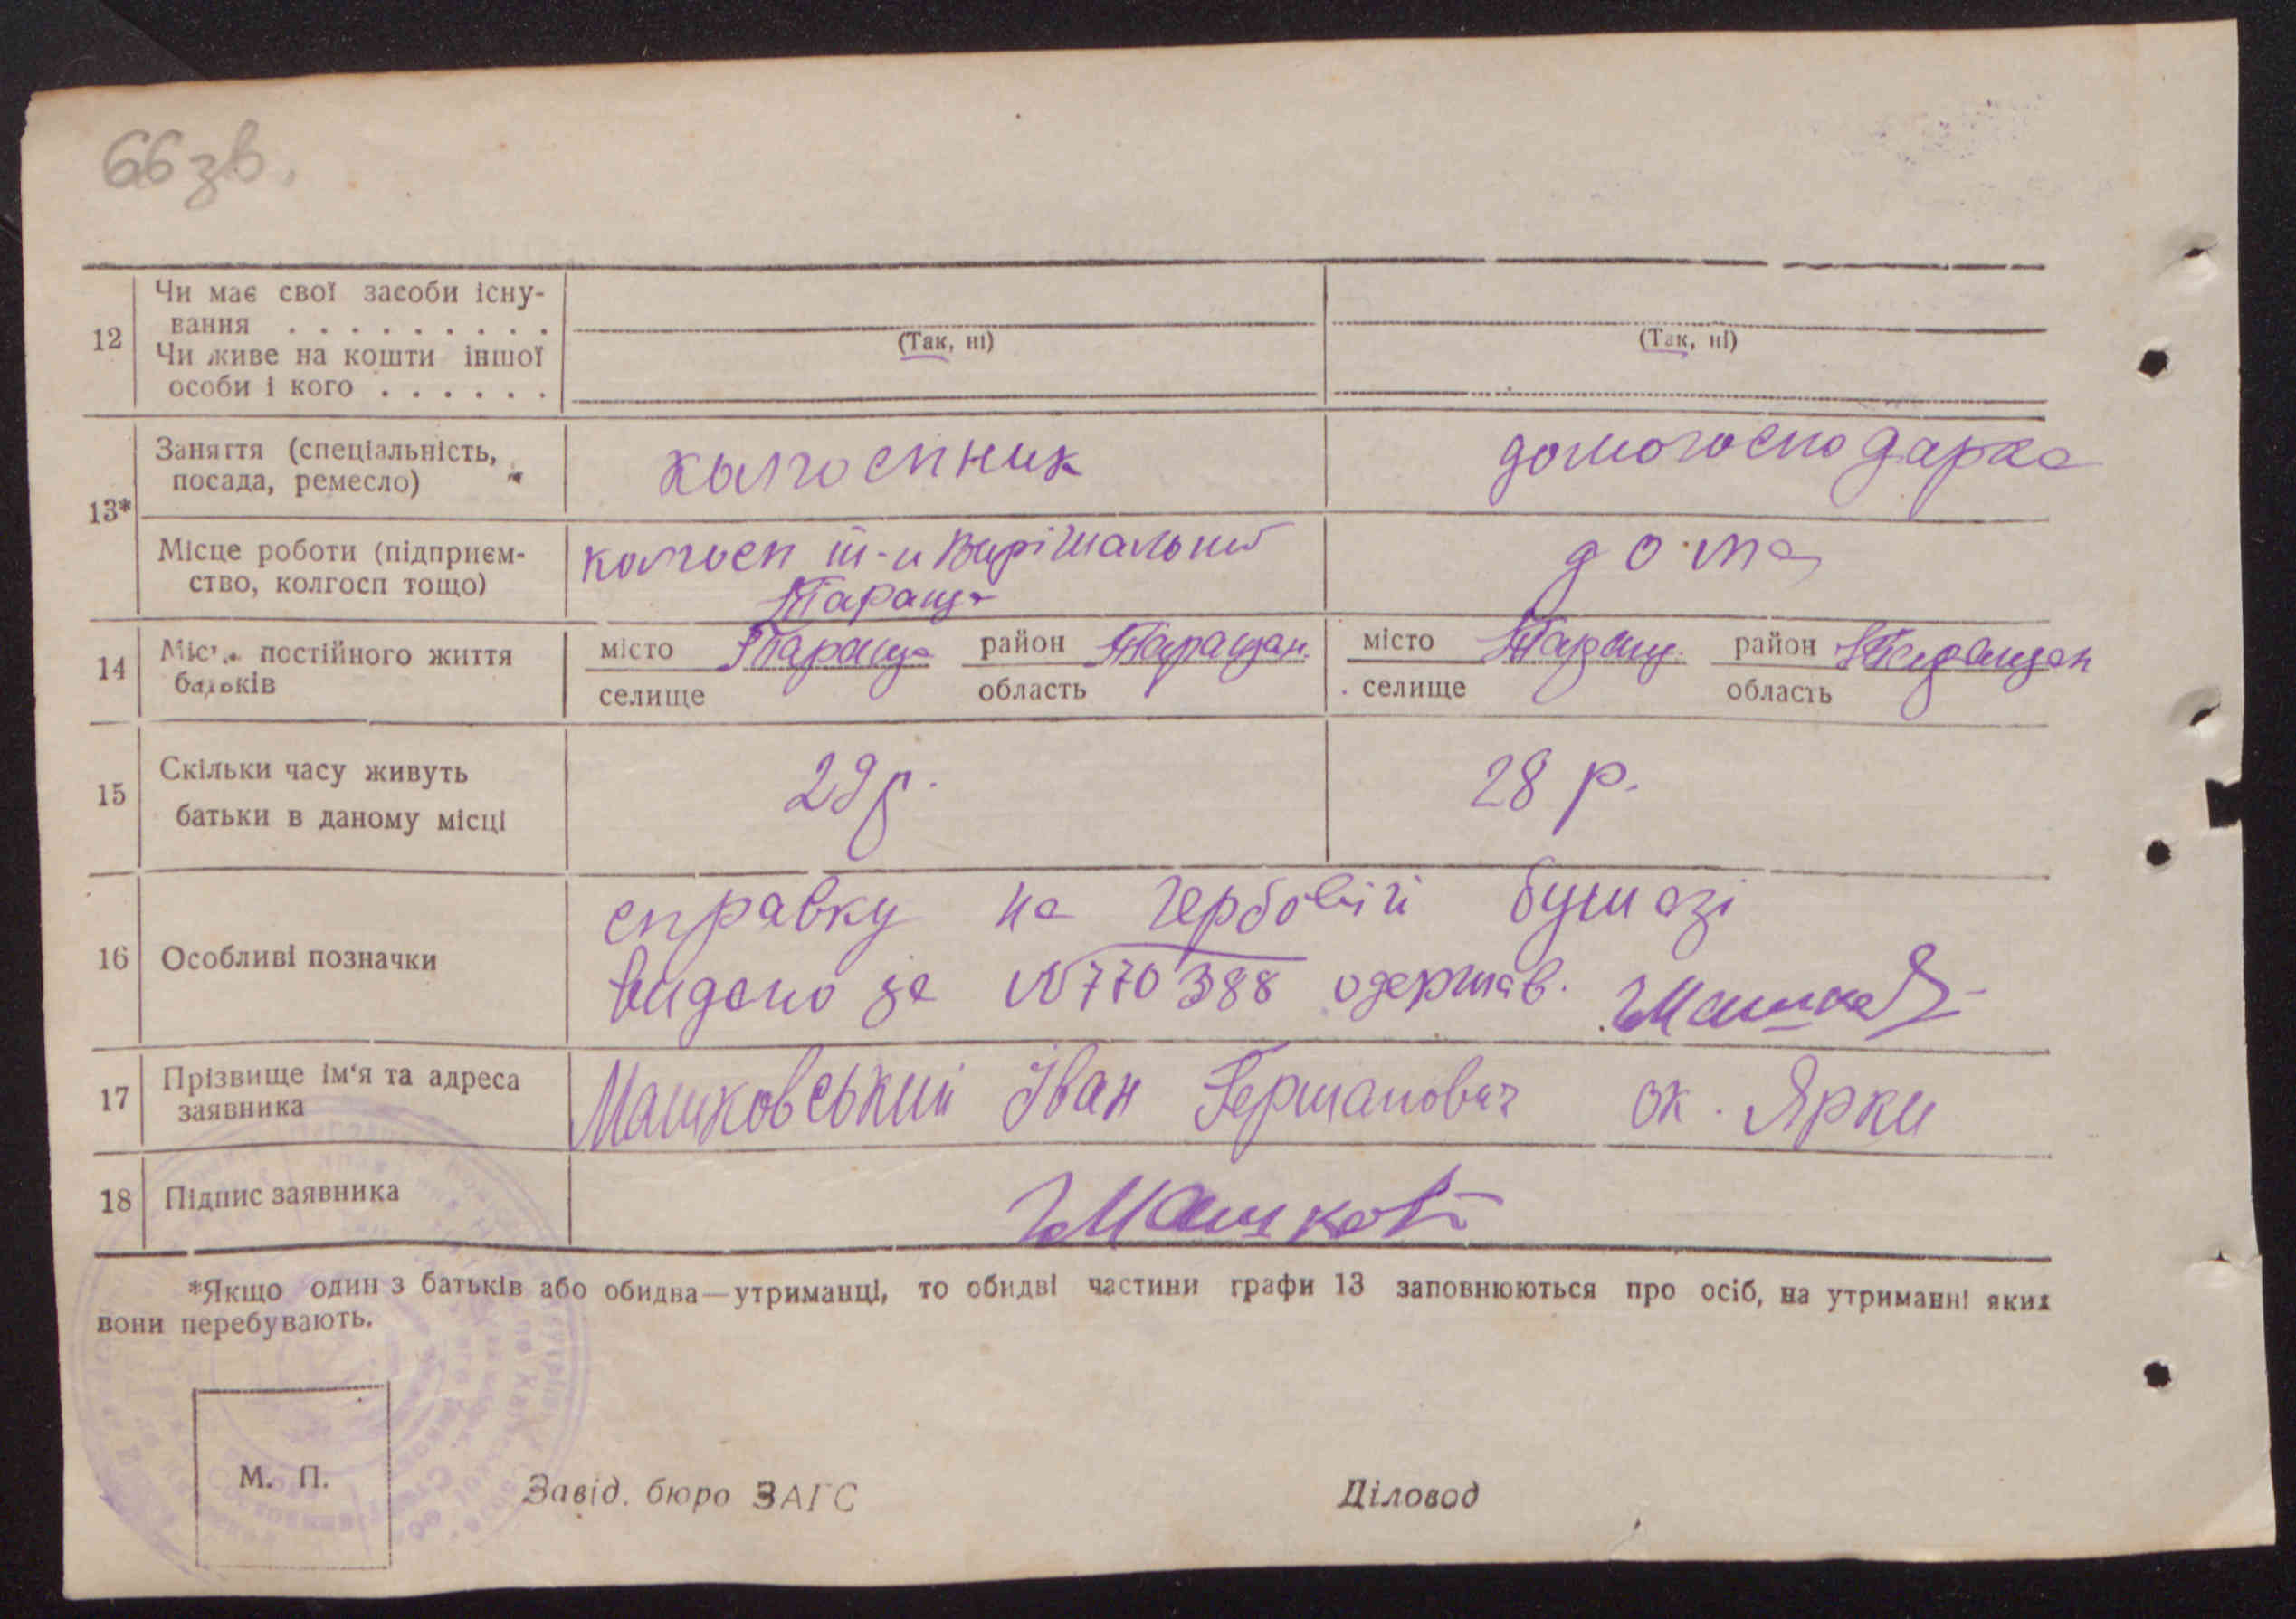 66 зв.
12 Чи має свої засоби існу-
вання . . . . . . . . .
(Так, ні) (Так, ні)
Чи живе на кошти іншої
особи і кого . . . . . .
13* Заняття (спеціальність,
посада, ремесло)
колгоспник домогосподарка
Місце роботи (підприєм-
ство, колгосп тощо)
колгосп ІІІ-й Вирішальний дома
Тараща
14 Місце постійного життя
батьків
місто Тараща район Таращан. місто Таращ. район Таращан
селище область селище область
15 Скільки часу живуть
батьки в даному місці
29 р. 28 р.
16 Особливі позначки
справку на гербовій бумазі
видано за № 770388 одержав.
17 Прізвище ім'я та адреса
заявника
Машковський Іван Германович ок. Ярки
18 Підпис заявника
*Якщо один з батьків або обидва—утриманці, то обидві частини графи 13 заповнюються про осіб, на утриманні яких
вони перебувають.
М. П.
Завід. бюро ЗАГС Діловод